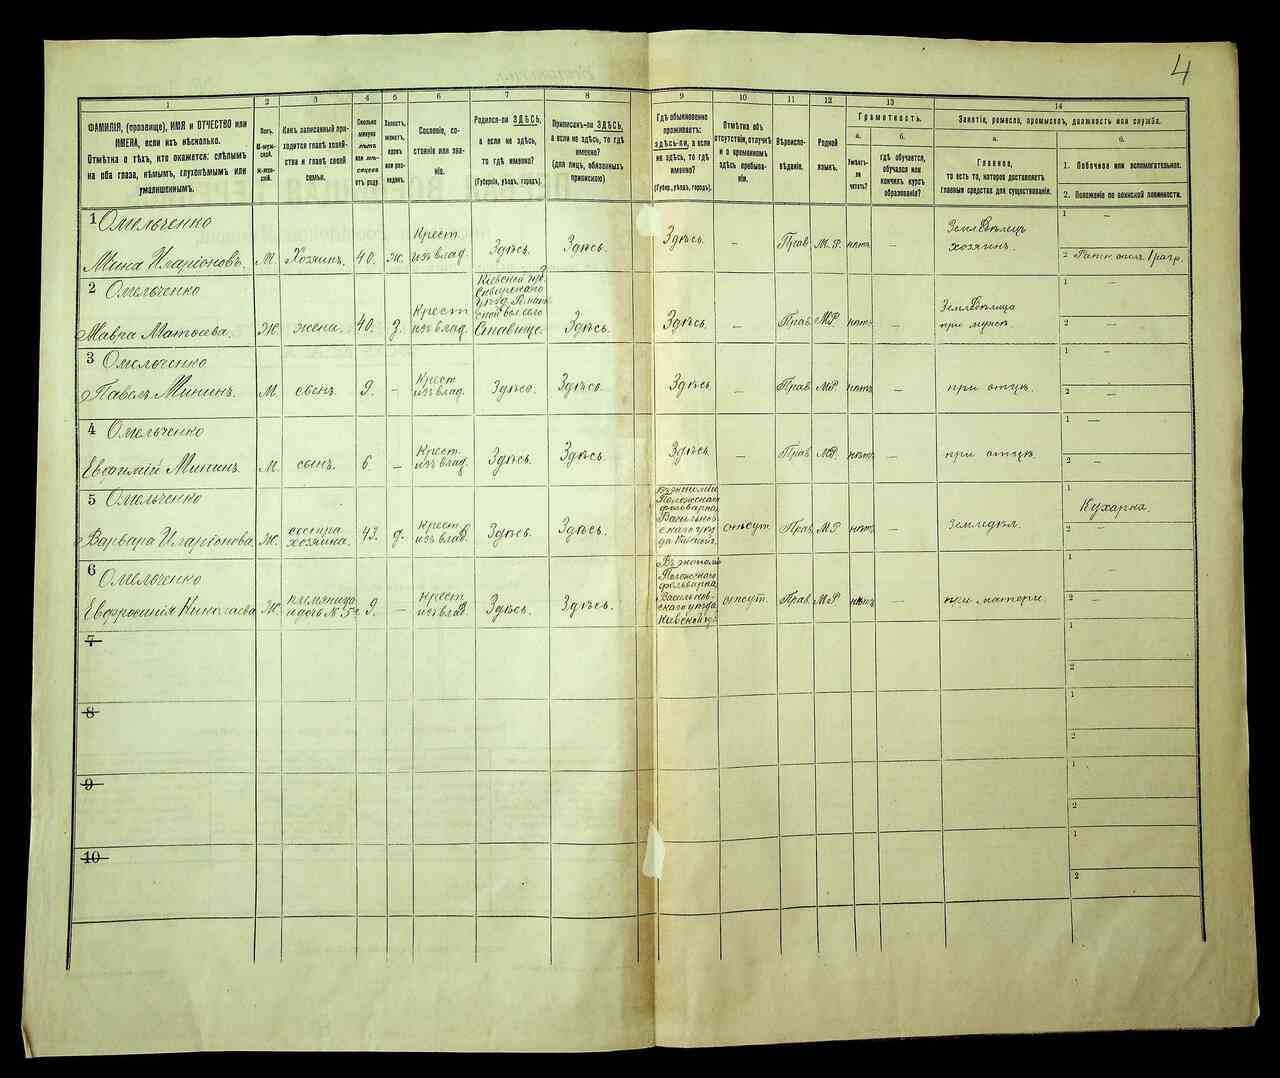 4
1
2
3
4
5
6
7
8
9
10
11
12
13
14
ФАМИЛІЯ, (прозвище), ИМЯ и ОТЧЕСТВО или
ИМЕНА, если ихъ нѣсколько.
Отмѣтка о тѣхъ, кто окажется: слѣпымъ
на оба глаза, нѣмымъ, глухонѣмымъ или
умалишеннымъ.
Полъ.
М-муж-
ской.
Ж-жен-
скій.
Какъ записанный при-
ходится главѣ хозяй-
ства и главѣ своей
семьи.
Сколько
минуло
лѣтъ
или мѣ-
сяцевъ
отъ роду.
Холостъ,
женатъ,
вдовъ
или раз-
веденъ.
Сословіе, со-
стояніе или зва-
ніе.
Родился-ли ЗДѢСЬ,
а если не здѣсь, то гдѣ
именно?
(Губернія, уѣздъ, городъ).
Приписанъ-ли ЗДѢСЬ,
а если не здѣсь, то гдѣ
именно?
(для лицъ, обязанныхъ
припискою)
Гдѣ обыкновенно
проживаетъ:
здѣсь-ли, а если
не здѣсь, то гдѣ
именно?
(Губер., уѣздъ, городъ).
Отмѣтка объ
отсутствіи, отлучкѣ
и о временномъ
здѣсь пребыва-
ніи.
Вѣроиспо-
вѣданіе.
Родной
языкъ.
Грамотность.
а.
Умѣетъ-
ли
читать?
б.
гдѣ обучается,
обучался или
кончилъ курсъ
образованія?
Занятіе, ремесло, промыселъ, должность или служба.
а.
Главное,
то есть то, которое доставляетъ
главныя средства для существованія.
б.
1. Побочное или вспомогательное.
2. Положеніе по воинской повинности.
1 Омельченко
Мина Иларіоновъ. М. Хозяинъ. 40. ж. Крест. изъ влад. Здѣсь. Здѣсь. Здѣсь. – Прав. М.Р. нѣтъ – Землѣвлецъ хозяинъ. 1 –
2 Ратн. опол. 1 разр.
2 Омельченко
Мавра Матѳѣева. Ж. жена. 40. з. Крест. изъ влад. Кіевской губ. Сквирскаго уѣзд. Ставище. Здѣсь. Здѣсь. – Прав. М.Р. нѣтъ – при мужѣ. 1 –
2 –
3 Омельченко
Павелъ Мининъ. М. сынъ. 9. – Крест. изъ влад. Здѣсь. Здѣсь. Здѣсь. – Прав. М.Р. нѣтъ – при отцѣ. 1 –
2 –
4 Омельченко
Евфимій Мининъ. М. сынъ. 6 – Крест. изъ влад. Здѣсь. Здѣсь. Здѣсь. – Прав. М.Р. нѣтъ – при отцѣ. 1 –
2 –
5 Омельченко
Варвара Иларіонова. Ж. сестра хозяина. 43. д. Крест. изъ влад. Здѣсь. Здѣсь. Въ экономіи фольварка, Васильков-скаго уѣз-да отсут. Прав. М.Р. нѣтъ – Земледѣл. 1 Кухарка.
2 –
6 Омельченко
Евфросинія Николаева. Ж. племяница и дочь № 5го 9. – Крест. изъ влад. Здѣсь. Здѣсь. Въ экономіи фольварка, Васильков-скаго уѣзда Кіевской губ. отсут. Прав. М.Р. нѣтъ – при матери. 1 –
2 –
7
1
2
8
1
2
9
1
2
10
1
2